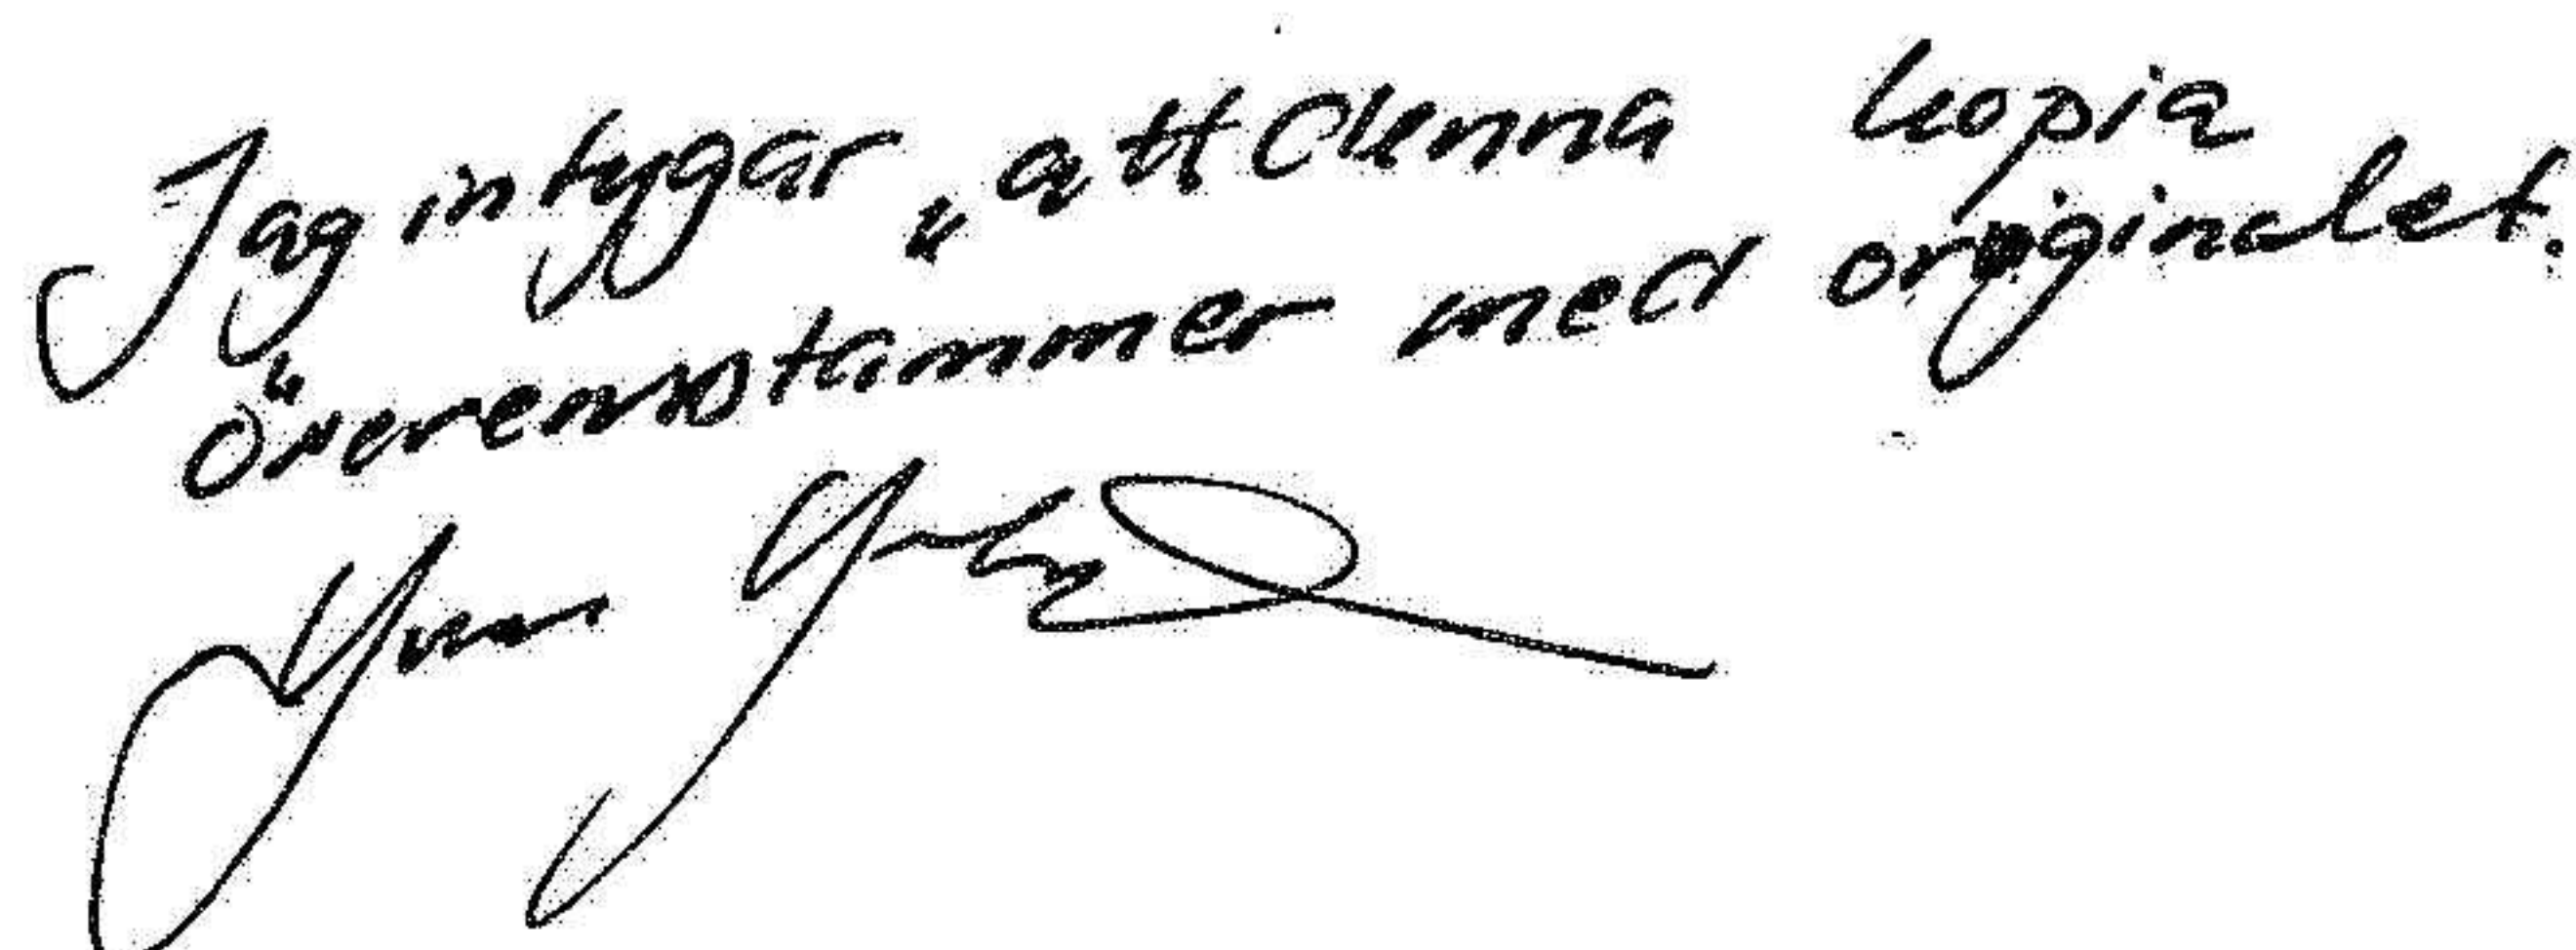 Jag intygar, att denna kopia
överensstämmer med originalet.